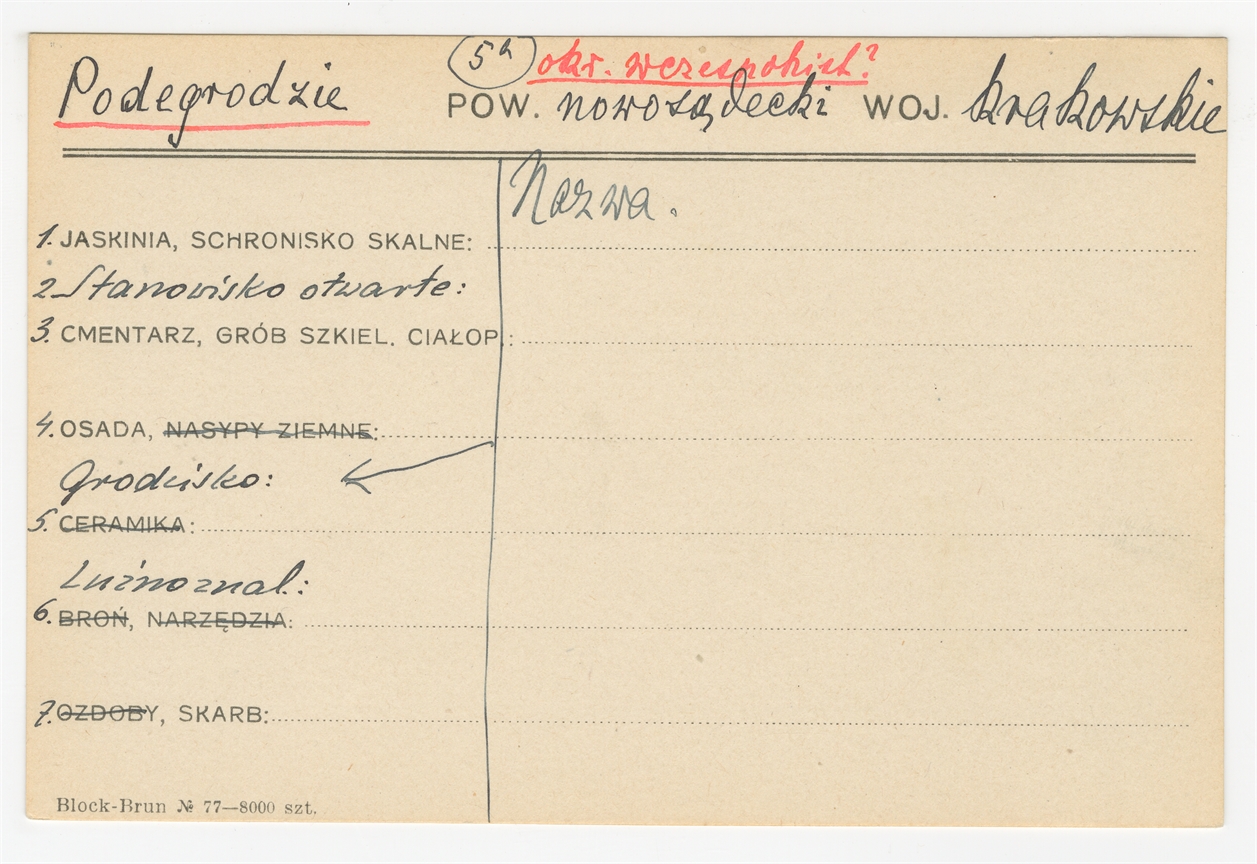 Podegrodzie
5a okr. wczespolish?
POW. nowosądecki WOJ. krakowskie
Nazwa.
1. JASKINIA, SCHRONISKO SKALNE:
2 Stanowisko otwarte:
3. CMENTARZ, GRÓB SZKIEL. CIAŁOP.:
4. OSADA, NASYPY ZIEMNE:
Grodzisko:
5. CERAMIKA:
Luźno znal.:
6. BROŃ, NARZĘDZIA:
7. OZDOBY, SKARB:
Block-Brun № 77—8000 szt.